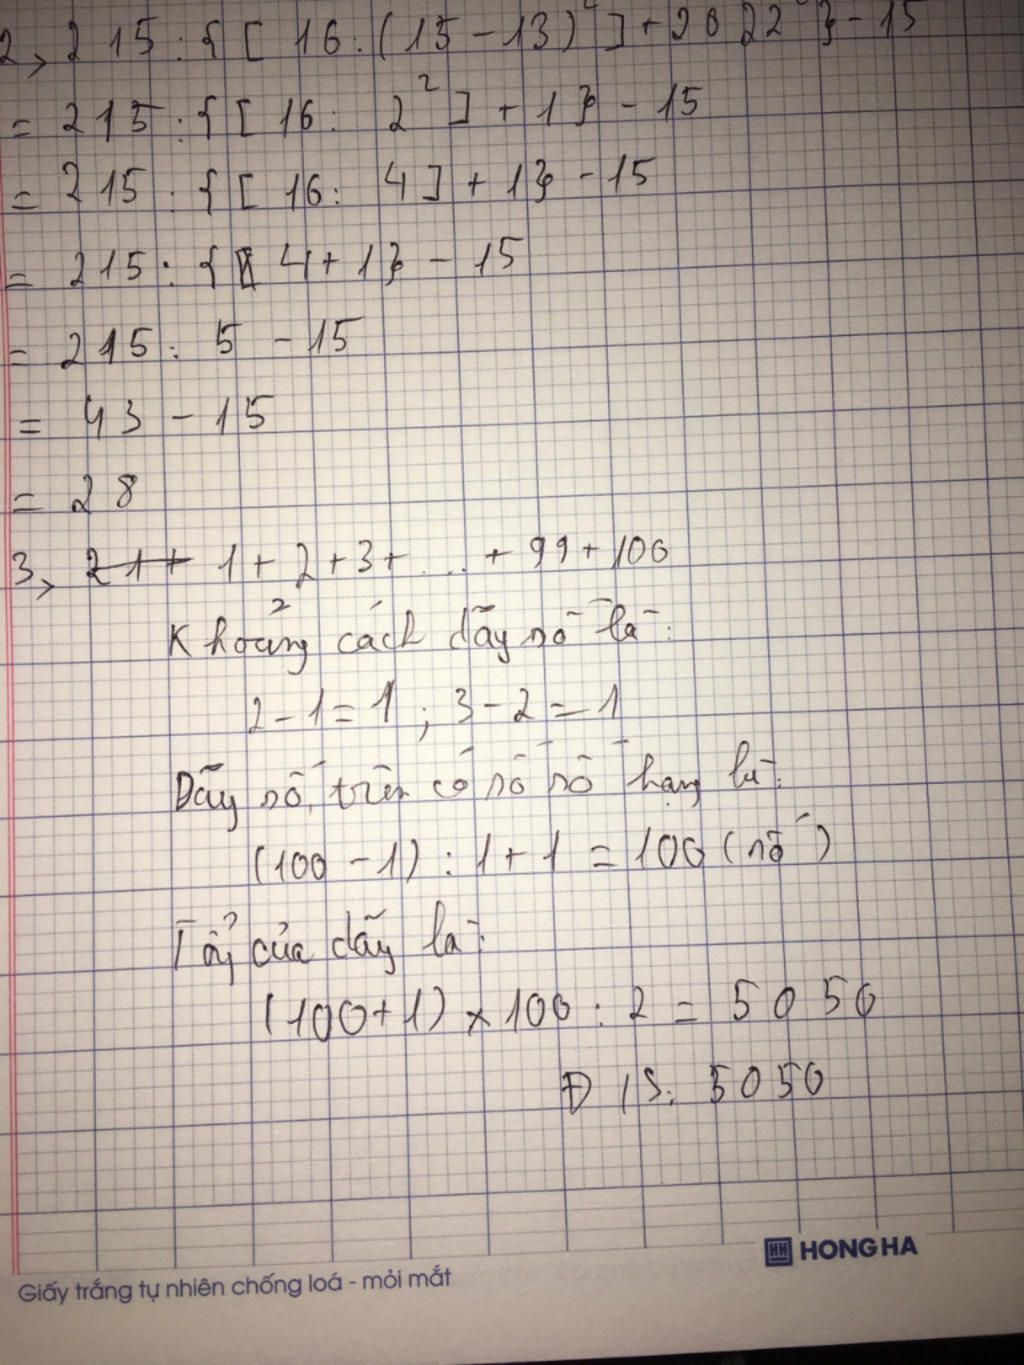 2, 215 : { [ 16 : (15 - 13)² ] + 2022⁰ } - 15
= 215 : { [ 16 : 2² ] + 1 } - 15
= 215 : { [ 16 : 4 ] + 1 } - 15
= 215 : { 4 + 1 } - 15
= 215 : 5 - 15
= 43 - 15
= 28
3, 1 + 2 + 3 + ... + 99 + 100
Khoảng cách dãy số là:
2 - 1 = 1 ; 3 - 2 = 1
Dãy số trên có số số hạng là:
(100 - 1) : 1 + 1 = 100 (số)
Tổng của dãy là:
(100 + 1) x 100 : 2 = 5050
Đ/S: 5050
HONG HA
Giấy trắng tự nhiên chống loá - mỏi mắt